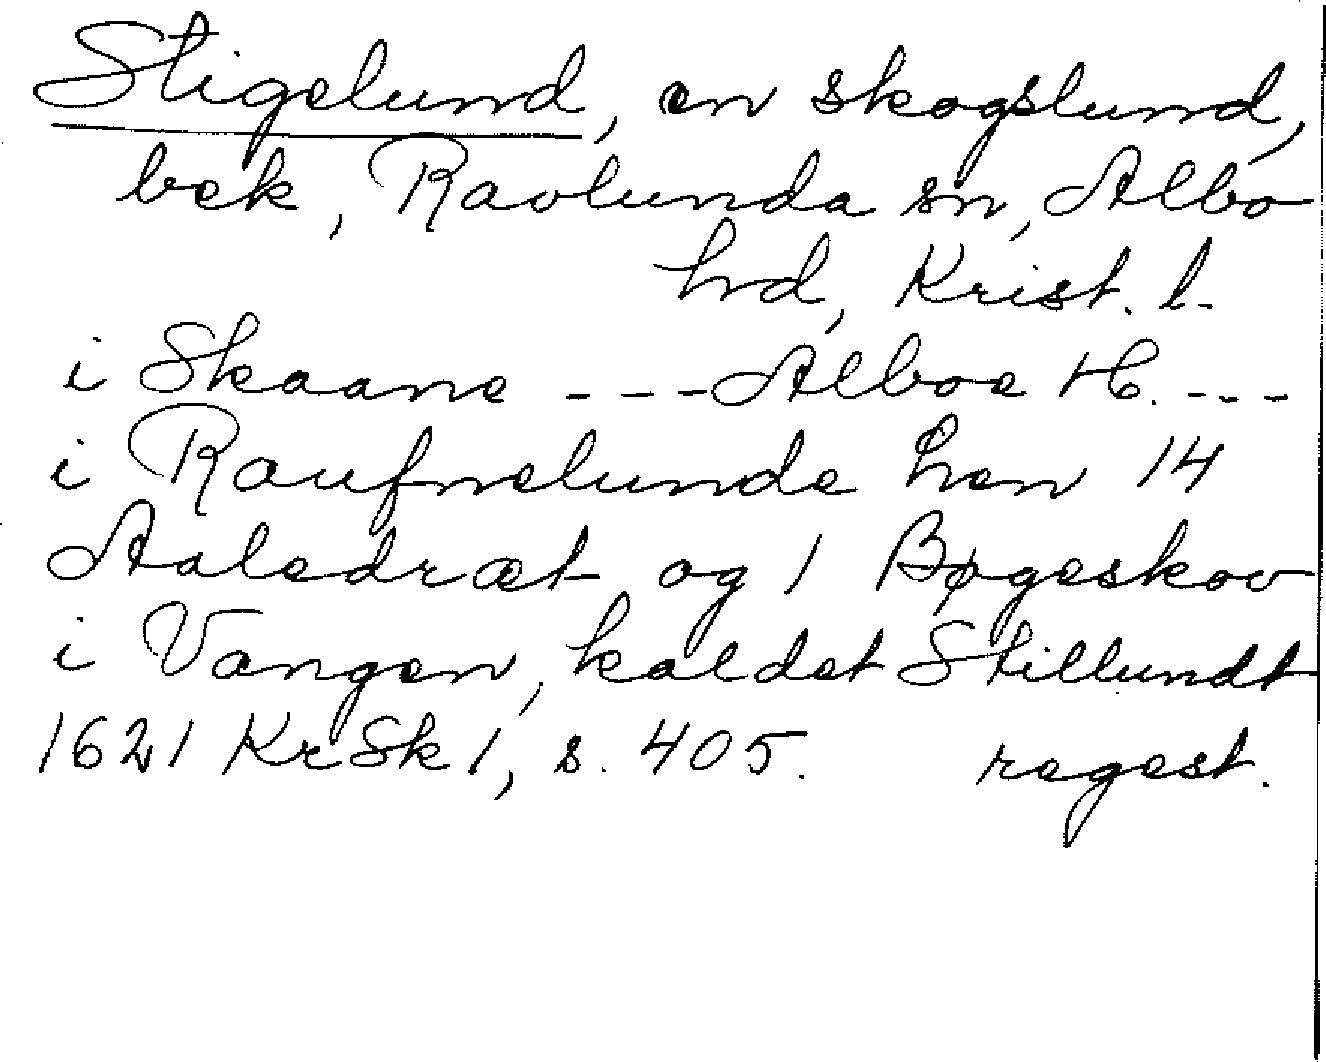 Stigelund, en skogslund,
bek, Ravlunda sn, Albo
hrd, Krist. l.
i Skaane --- Alboe H. ---
i Raufnelunde hen 14
Aaledræt og 1 Bøgeskov
i Vangen, kaldet Stillundt
1621 KrSk 1, s. 405. regest.